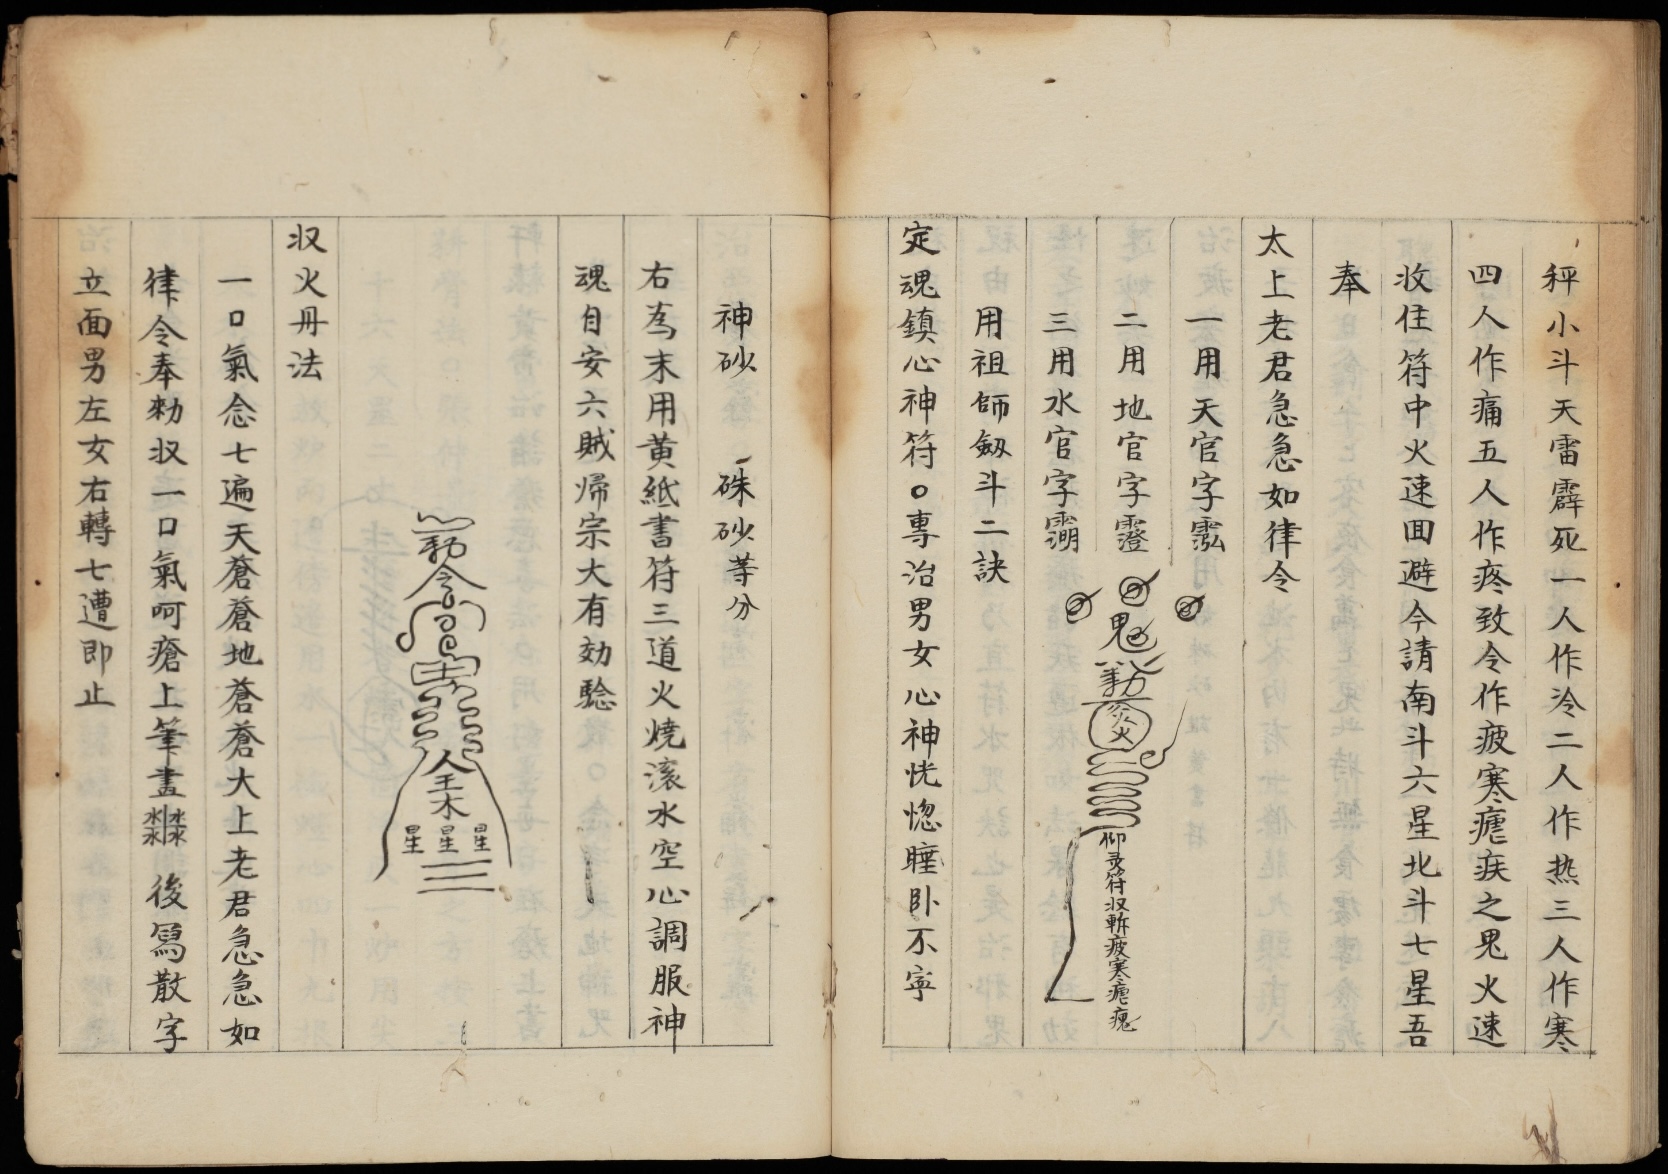 秤小斗天雷霹死一人作冷二人作热三人作寒
四人作痛五人作疼致令作疲寒瘧疾之鬼火速
收住符中火速回避今請南斗六星北斗七星吾
奉
太上老君急急如律令
一用天官字
二用地官字
三用水官字
鬼
仰灵符収斬疲寒瘧鬼
用祖師劔斗二訣
定魂鎮心神符○專治男女心神恍惚睡卧不寧
神砂 硃砂等分
右為末用黄紙書符三道火燒滚水空心調服神
魂自安六贼歸宗大有効驗
令
星星星
収火丹法
一口氣念七遍天蒼蒼地蒼蒼大上老君急急如
律令奉勅収一口氣呵瘡上筆畫 後寫散字
立面男左女右轉七遭即止